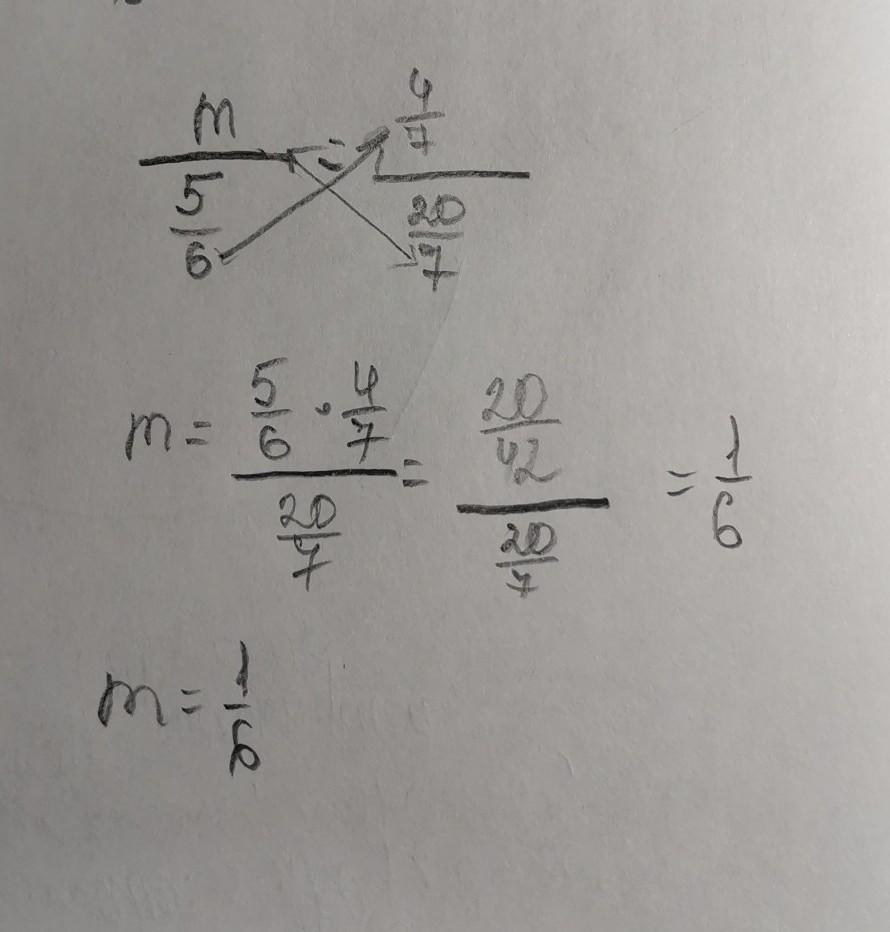 m/(5/6) = (4/7)/(20/7)
m = (5/6 · 4/7)/(20/7) = (20/42)/(20/7) = 1/6
m = 1/6